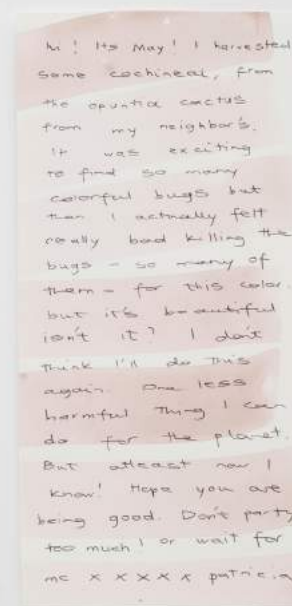 hi! Its May! I harvested
some cochineal, from
the opuntia cactus
from my neighbor's.
It was exciting
to find so many
colorful bugs but
then I actually felt
really bad killing the
bugs - so many of
them - for this color.
but it's beautiful
isn't it? I don't
think I'll do this
again. One less
harmful thing I can
do for the planet.
But atleast now I
know! Hope you are
being good. Don't party
too much! or wait for
me x x x x x patricia